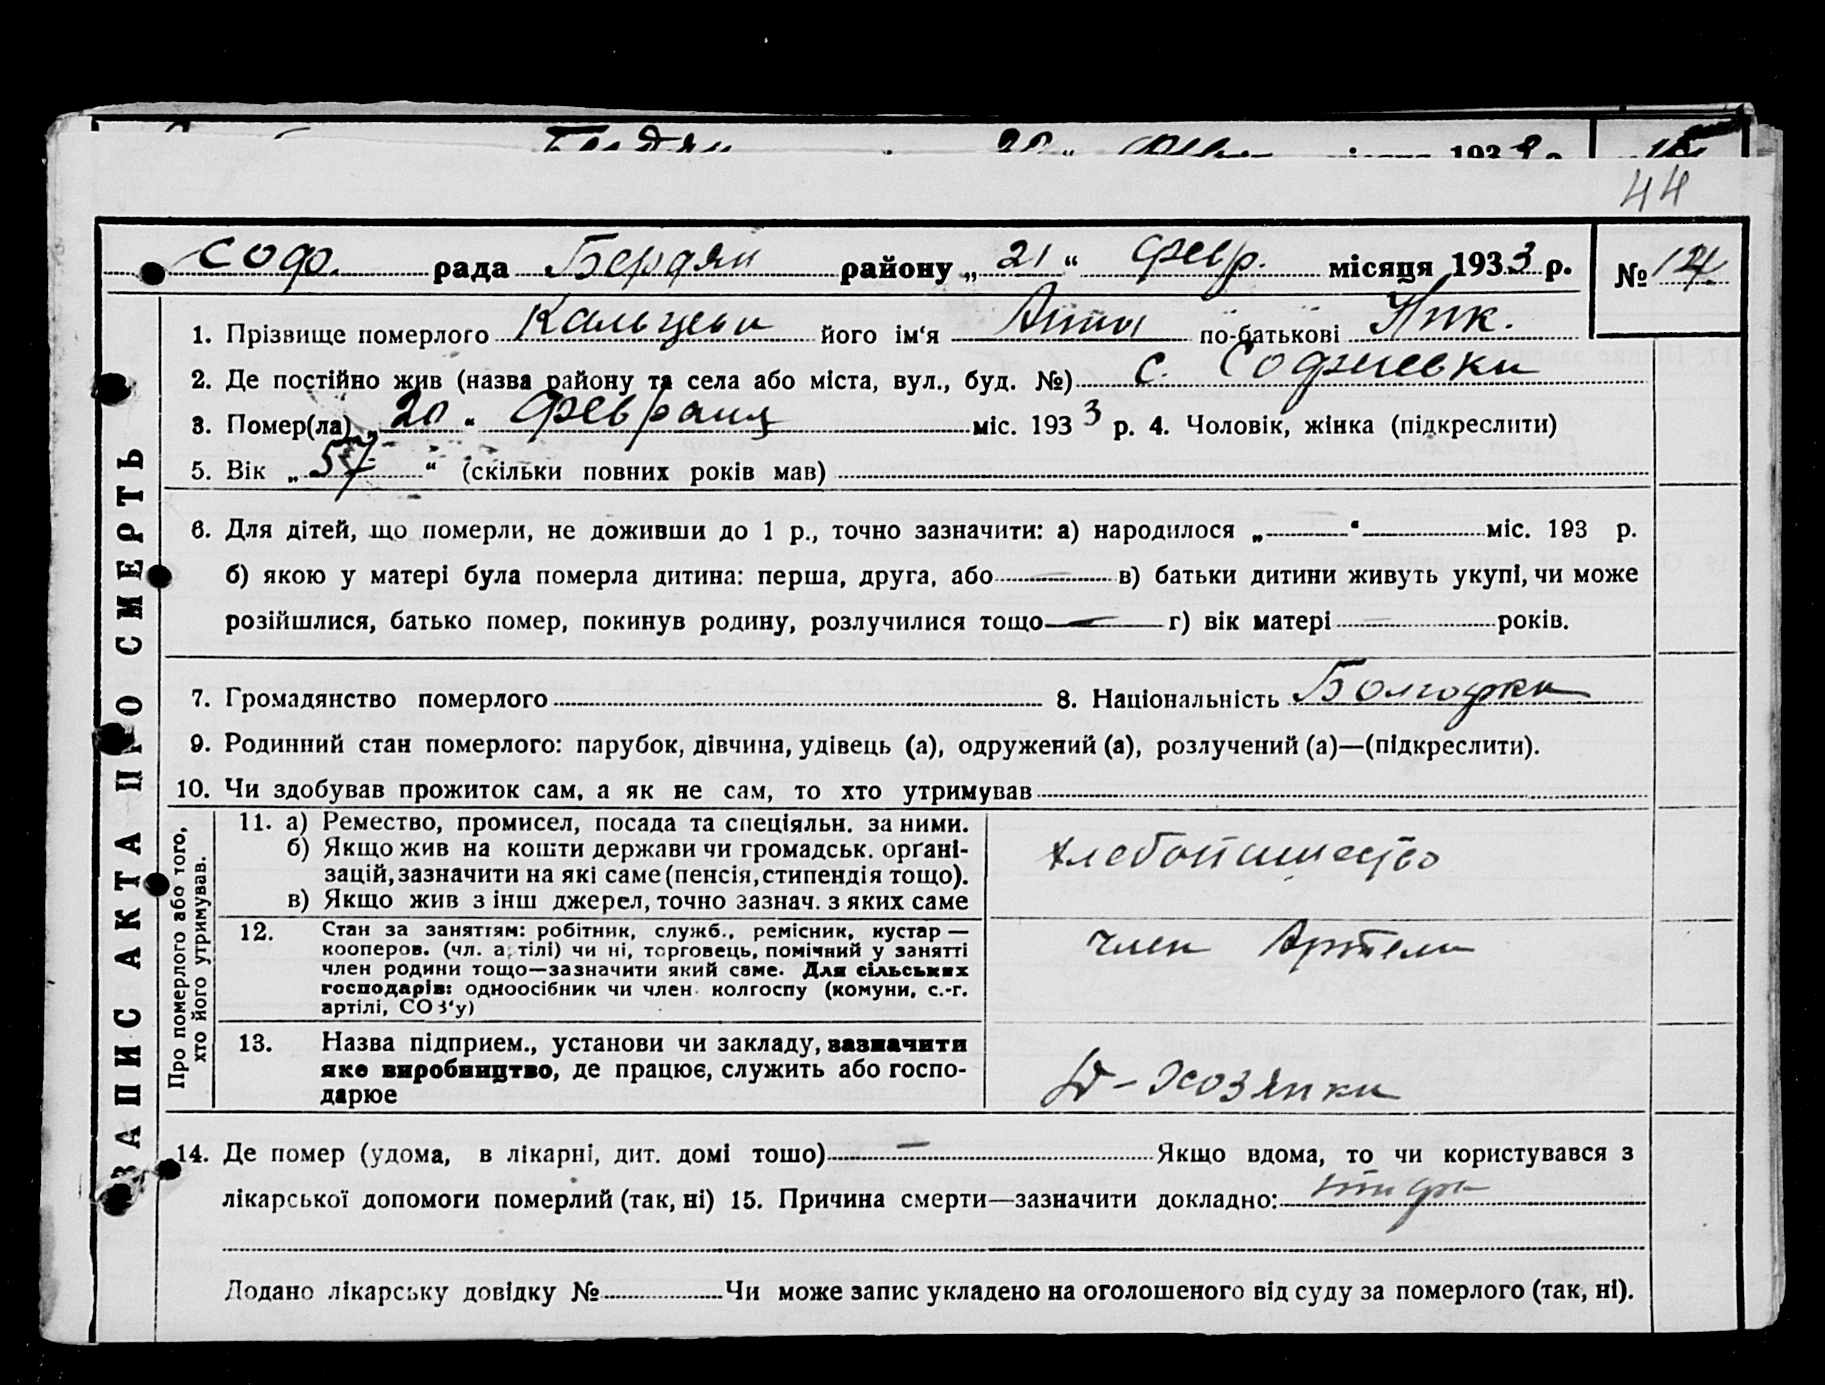 44
Соф. рада Бердян району „ 21 “ февр. місяця 1933 р. № 14
ЗАПИС АКТА ПРО СМЕРТЬ
1. Прізвище померлого Кальцева його ім‘я Анна по-батькові Ник.
2. Де постійно жив (назва району та села або міста, вул., буд. №) с. Софиевки
3. Помер(ла) „ 20 “ февраля міс. 1933 р. 4. Чоловік, жінка (підкреслити)
5. Вік „ 57 “ (скільки повних років мав)
6. Для дітей, що померли, не доживши до 1 р., точно зазначити: а) народилося „ “ міс. 193 р.
б) якою у матері була померла дитина: перша, друга, або — в) батьки дитини живуть укупі, чи може
розійшлися, батько помер, покинув родину, розлучилися тощо — г) вік матері — років.
7. Громадянство померлого 8. Національність Болгарка
9. Родинний стан померлого: парубок, дівчина, удівець (а), одружений (а), розлучений (а)—(підкреслити).
10. Чи здобував прожиток сам, а як не сам, то хто утримував
Про померлого або того,
хто його утримував.
11. а) Ремество, промисел, посада та спеціяльн. за ними.
б) Якщо жив на кошти держави чи громадськ. орґані-
зацій, зазначити на які саме (пенсія, стипендія тощо).
в) Якщо жив з інш джерел, точно зазнач. з яких саме
хлебопашество
12. Стан за заняттям: робітник, служб., ремісник, кустар —
кооперов. (чл. артілі) чи ні, торговець, помічний у занятті
член родини тощо—зазначити який саме. Для сільських
господарів: одноосібник чи член колгоспу (комуни, с.-г.
артілі, СОЗ‘у)
член Артели
13. Назва підприєм., установи чи закладу, зазначити
яке виробництво, де працює, служить або госпо-
дарює
Д-хозяйка
14. Де помер (удома, в лікарні, дит. домі тощо) — Якщо вдома, то чи користувався з
лікарської допомоги померлий (так, ні) 15. Причина смерти—зазначити докладно:
Додано лікарську довідку № Чи може запис укладено на оголошеного від суду за померлого (так, ні).